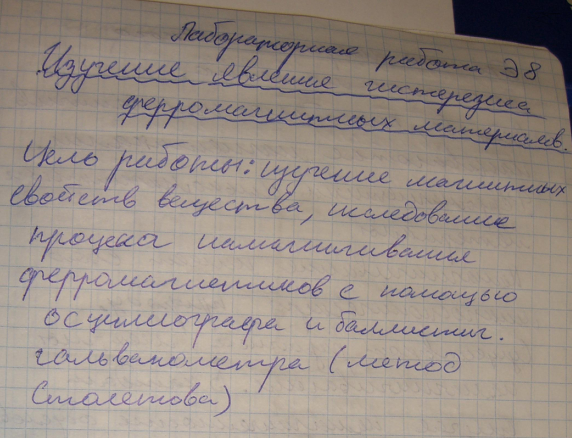 Лабораторная работа Э8
Изучение явления гистерезиса
ферромагнитных материалов.
Цель работы: изучение магнитных
свойств вещества, исследование
процесса намагничивания
ферромагнетиков с помощью
осциллографа и баллистич.
гальванометра (метод
Столетова)